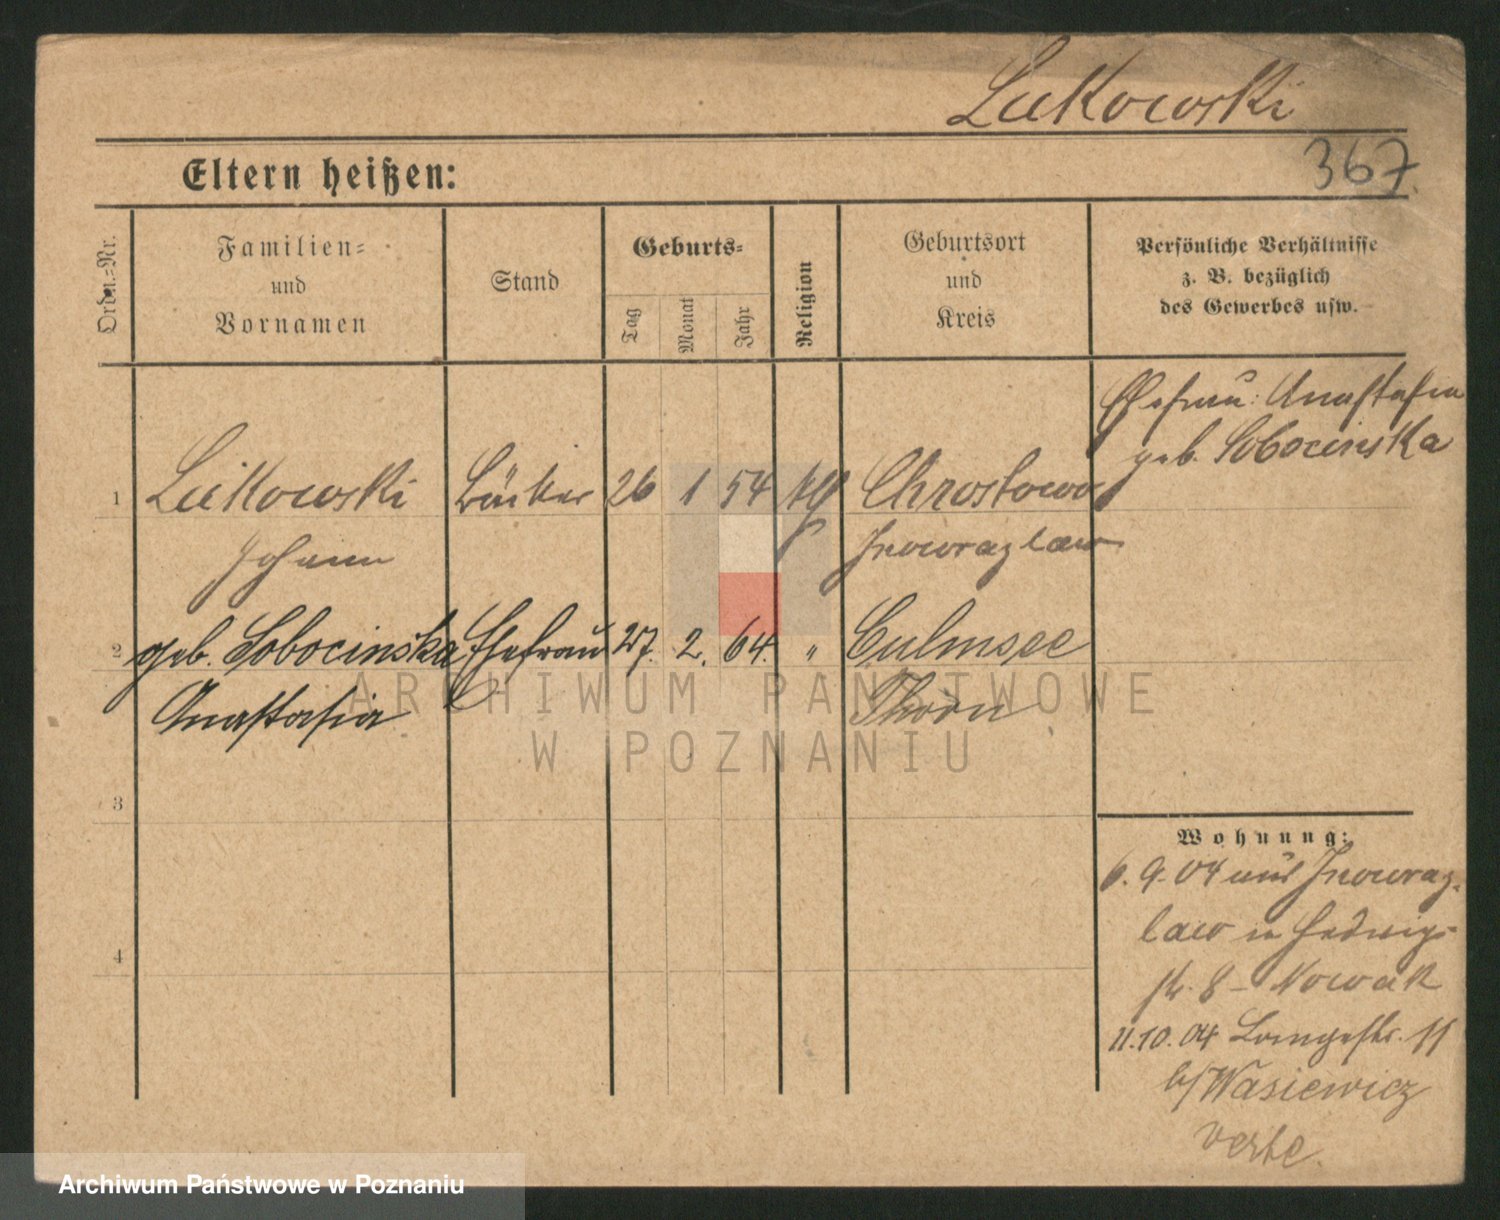 Lukowski
Eltern heißen:
367.
Ordn.=Nr.
Familien=
und
Vornamen
Stand
Geburts=
Tag
Monat
Jahr
Religion
Geburtsort
und
Kreis
Persönliche Verhältnisse
z. B. bezüglich
des Gewerbes usw.
Ehefrau: Anastasia
geb. Sobocinska
1 Lukowski Bäcker 26 1 54 kg Chrostowo
Johann Inowrazlaw
2 geb. Sobocinska Ehefrau 27. 2. 64. " Culmsee
Anastasia Thorn
ARCHIWUM PAŃSTWOWE
W POZNANIU
3
Wohnung:
6. 9. 04 aus Inowraz-
law in Hedwig-
str. 8 - Nowak
4
11.10. 04 Langestr. 11
b/Wasiewicz
verte.
Archiwum Państwowe w Poznaniu